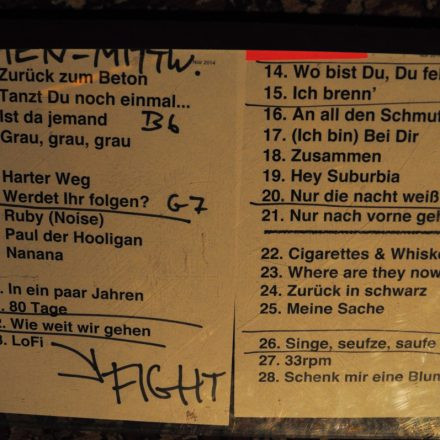 MITTW.
2014
Zurück zum Beton
Tanzt Du noch einmal...
Ist da jemand B6
Grau, grau, grau
Harter Weg
Werdet Ihr folgen? G7
Ruby (Noise)
Paul der Hooligan
Nanana
. In ein paar Jahren
. 80 Tage
2. Wie weit wir gehen
3. LoFi
FIGHT
14. Wo bist Du, Du
15. Ich brenn'
16. An all den
17. (Ich bin) Bei Dir
18. Zusammen
19. Hey Suburbia
20. Nur die nacht weiß
21. Nur nach vorne
22. Cigarettes &
23. Where are they now
24. Zurück in schwarz
25. Meine Sache
26. Singe, seufze, saufe
27. 33rpm
28. Schenk mir eine